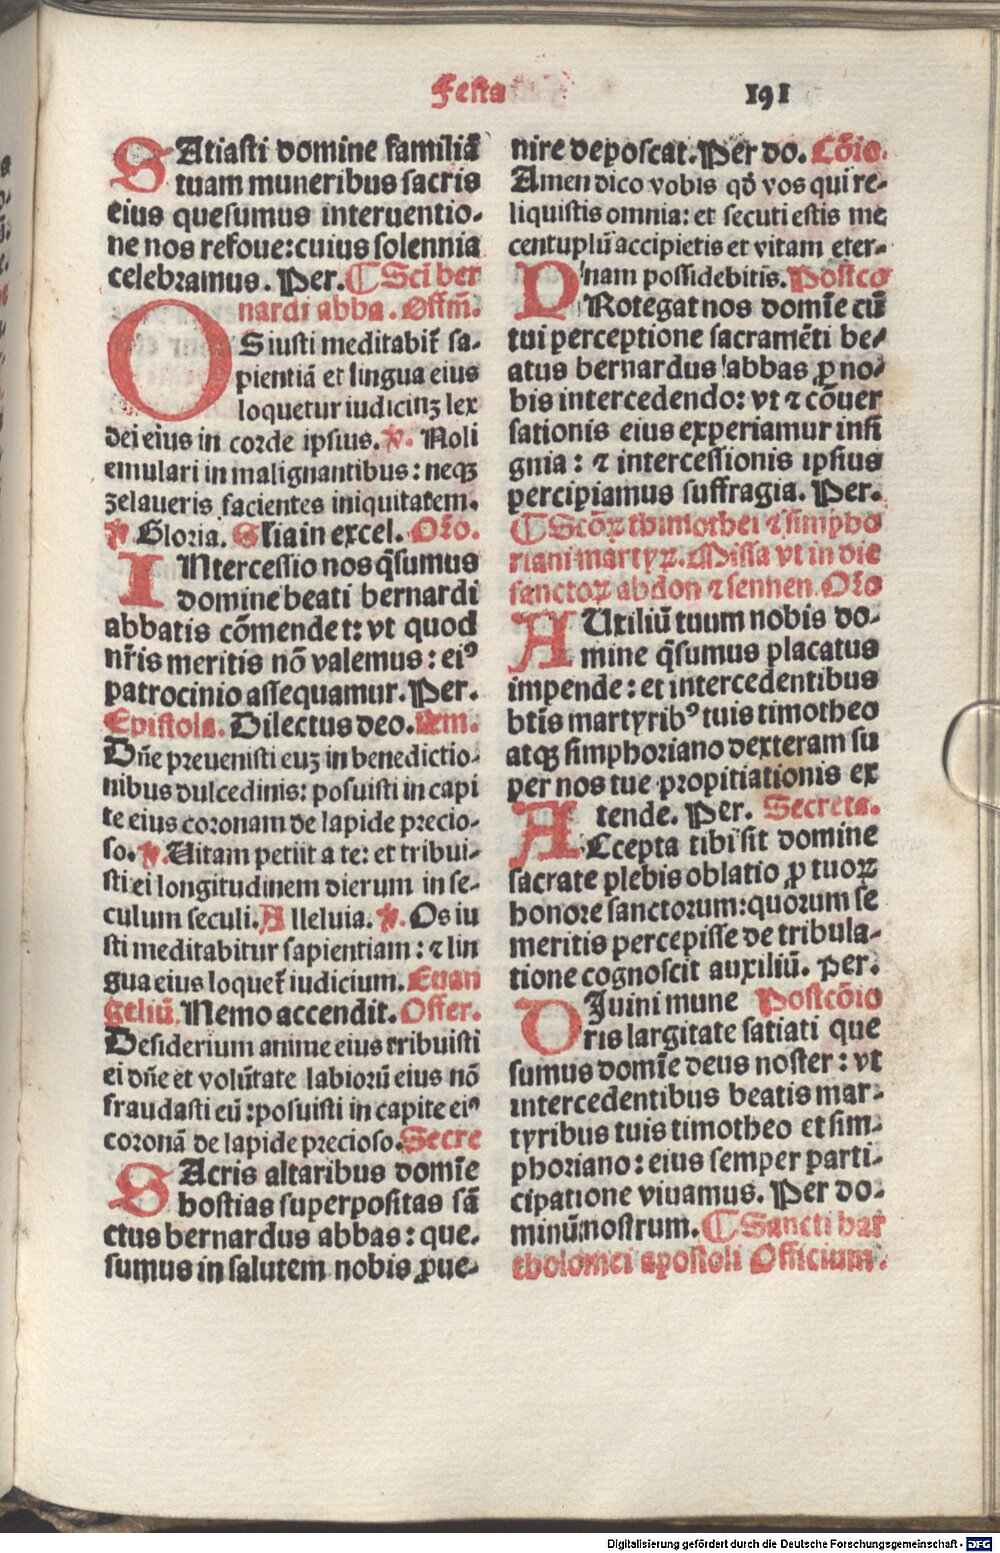 Festa 191
SAtiasti domine familiā
tuam muneribus sacris
eius quesumus interuentio-
ne nos refoue: cuius solennia
celebramus. Per. ¶ Sci ber
nardi abba. Offm̄.
OS iusti meditabit᷑ sa-
pientiā et lingua eius
loquetur iudiciuꝫ lex
dei eius in corde ipsius. ℣. Noli
emulari in malignantibus: neqꝫ
zelaueris facientes iniquitatem.
℣ Gloria. Glia in excel. Oro.
INtercessio nos q̄sumus
domine beati bernardi
abbatis cōmendet: vt quod
nr̄is meritis nō valemus: eiꝰ
patrocinio assequamur. Per.
Epistola. Dilectus deo.
Dn̄e preuenisti euꝫ in benedictio-
nibus dulcedinis: posuisti in capi
te eius coronam de lapide precio-
so. ℣. Uitam petiit a te: et tribui-
sti ei longitudinem dierum in se-
culum seculi. Alleluia. ℣. Os iu
sti meditabitur sapientiam: ⁊ lin
gua eius loquet᷑ iudicium. Euan
geliū. Nemo accendit. Offer.
Desiderium anime eius tribuisti
ei dn̄e et volūtate labiorū eius nō
fraudasti eū: posuisti in capite eiꝰ
coronā de lapide precioso. Secre
SAcris altaribus domīe
hostias superpositas sā
ctus bernardus abbas: que-
sumus in salutem nobis ꝓue-
nire deposcat. Per do. Cōio.
Amen dico vobis qd̄ vos qui re-
liquistis omnia: et secuti estis me
centuplū accipietis et vitam eter-
nam possidebitis. Postco
PRotegat nos domīe cū
tui perceptione sacramēti be-
atus bernardus abbas ꝓ no-
bis intercedendo: vt ⁊ cōuer
sationis eius experiamur insi
gnia: ⁊ intercessionis ipsius
percipiamus suffragia. Per.
¶ Scōꝝ thimothei ⁊ simpho
riani martyꝝ. Missa vt in die
sanctoꝝ abdon ⁊ sennen. Oro
AUxiliū tuum nobis do-
mine q̄sumus placatus
impende: et intercedentibus
btīs martyribꝰ tuis timotheo
atqꝫ simphoriano dexteram su
per nos tue propitiationis ex
tende. Per. Secreta.
ACcepta tibi sit domine
sacrate plebis oblatio ꝓ tuoꝝ
honore sanctorum: quorum se
meritis percepisse de tribula-
tione cognoscit auxiliū. per.
DIuini mune Postcōio
ris largitate satiati que
sumus domīe deus noster: vt
intercedentibus beatis mar-
tyribus tuis timotheo et sim-
phoriano: eius semper parti-
cipatione viuamus. Per do-
minū nostrum. ¶ Sancti bar
tholomei apostoli Officium.
Digitalisierung gefördert durch die Deutsche Forschungsgemeinschaft - DFG